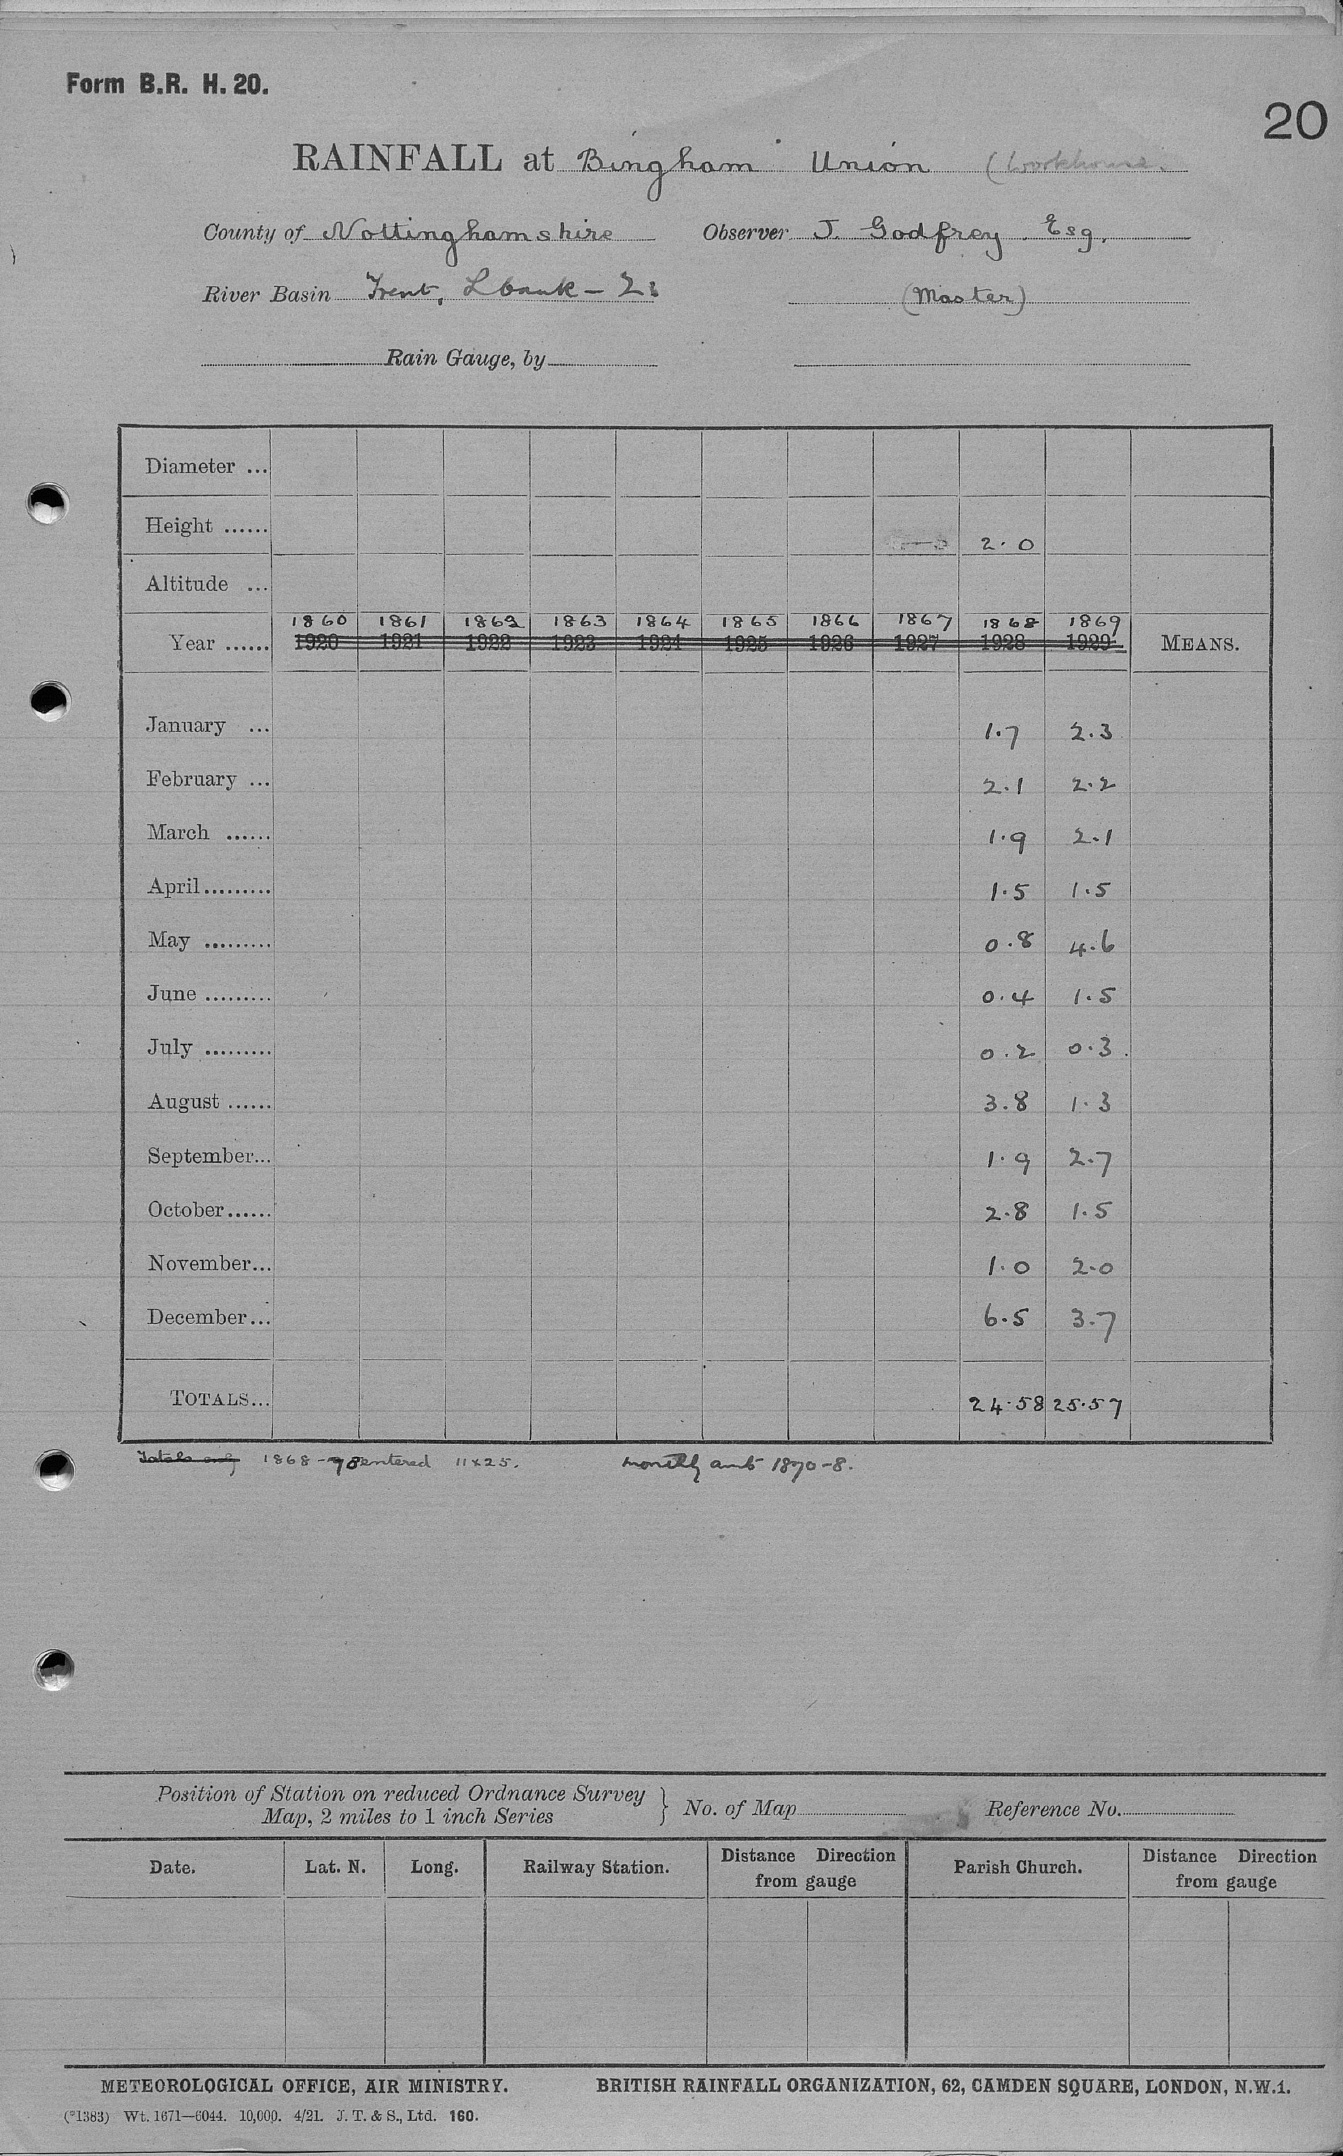 Form B.R. H. 20.
20
RAINFALL at Bingham Union (Workhouse.
County of Nottinghamshire Observer J. Godfrey Esq.
River Basin Trent, L bank - (Master)
Rain Gauge, by
Diameter ...
Height ...... 2.0
Altitude ...
1860 1861 1862 1863 1864 1865 1866 1867 1868 1869
Year ...... 1920 1921 1922 1923 1924 1925 1926 1927 1928 1929 MEANS.
January ... 1.7 2.3
February ... 2.1 2.2
March ...... 1.9 2.1
April ......... 1.5 1.5
May ......... 0.8 4.6
June ......... 0.4 1.5
July ......... 0.2 0.3
August ...... 3.8 1.3
September... 1.9 2.7
October...... 2.8 1.5
November... 1.0 2.0
December... 6.5 3.7
TOTALS... 24.58 25.57
Totals only 1868-78 entered 11x25. monthly amts 1870-8.
Position of Station on reduced Ordnance Survey
Map, 2 miles to 1 inch Series } No. of Map Reference No.
Date. Lat. N. Long. Railway Station. Distance from gauge Direction Parish Church. Distance from gauge Direction
METEOROLOGICAL OFFICE, AIR MINISTRY. BRITISH RAINFALL ORGANIZATION, 62, CAMDEN SQUARE, LONDON, N.W.1.
(*1383) Wt. 1671—6044. 10,000. 4/21. J. T. & S., Ltd. 160.